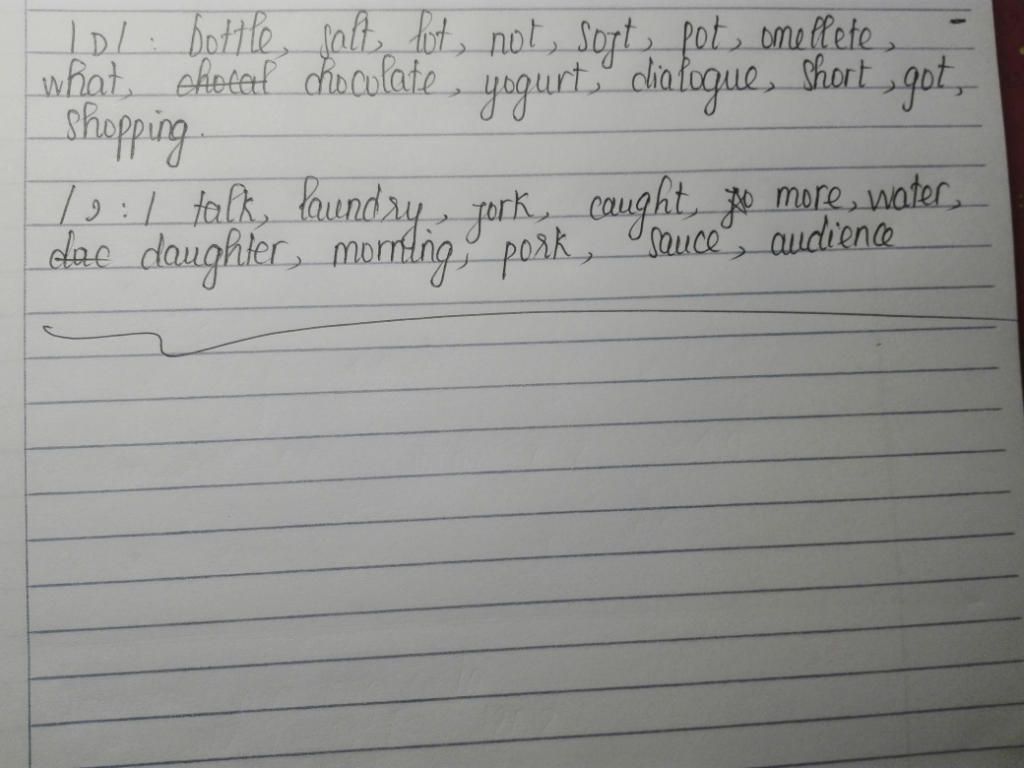 /ɒ/: bottle, salt, lot, not, soft, pot, omellete,
what, chocolate, yogurt, dialogue, short, got,
shopping.
/ɔ:/ talk, laundry, fork, caught, more, water,
daughter, morning, pork, sauce, audience